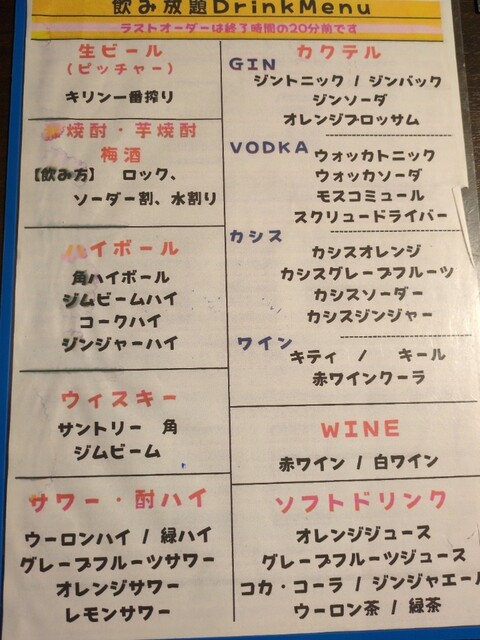 飲み放題DrinkMenu
ラストオーダーは終了時間の20分前です
生ビール
(ピッチャー)
キリン一番搾り
焼酎・芋焼酎
梅酒
【飲み方】 ロック、
ソーダー割、水割り
ハイボール
角ハイボール
ジムビームハイ
コークハイ
ジンジャーハイ
ウィスキー
サントリー 角
ジムビーム
サワー・酎ハイ
ウーロンハイ / 緑ハイ
グレープフルーツサワー
オレンジサワー
レモンサワー
カクテル
GIN
ジントニック / ジンバック
ジンソーダ
オレンジブロッサム
VODKA
ウォッカトニック
ウォッカソーダ
モスコミュール
スクリュードライバー
カシス
カシスオレンジ
カシスグレープフルーツ
カシスソーダー
カシスジンジャー
ワイン
キティ / キール
赤ワインクーラ
WINE
赤ワイン / 白ワイン
ソフトドリンク
オレンジジュース
グレープフルーツジュース
コカ・コーラ / ジンジャエール
ウーロン茶 / 緑茶